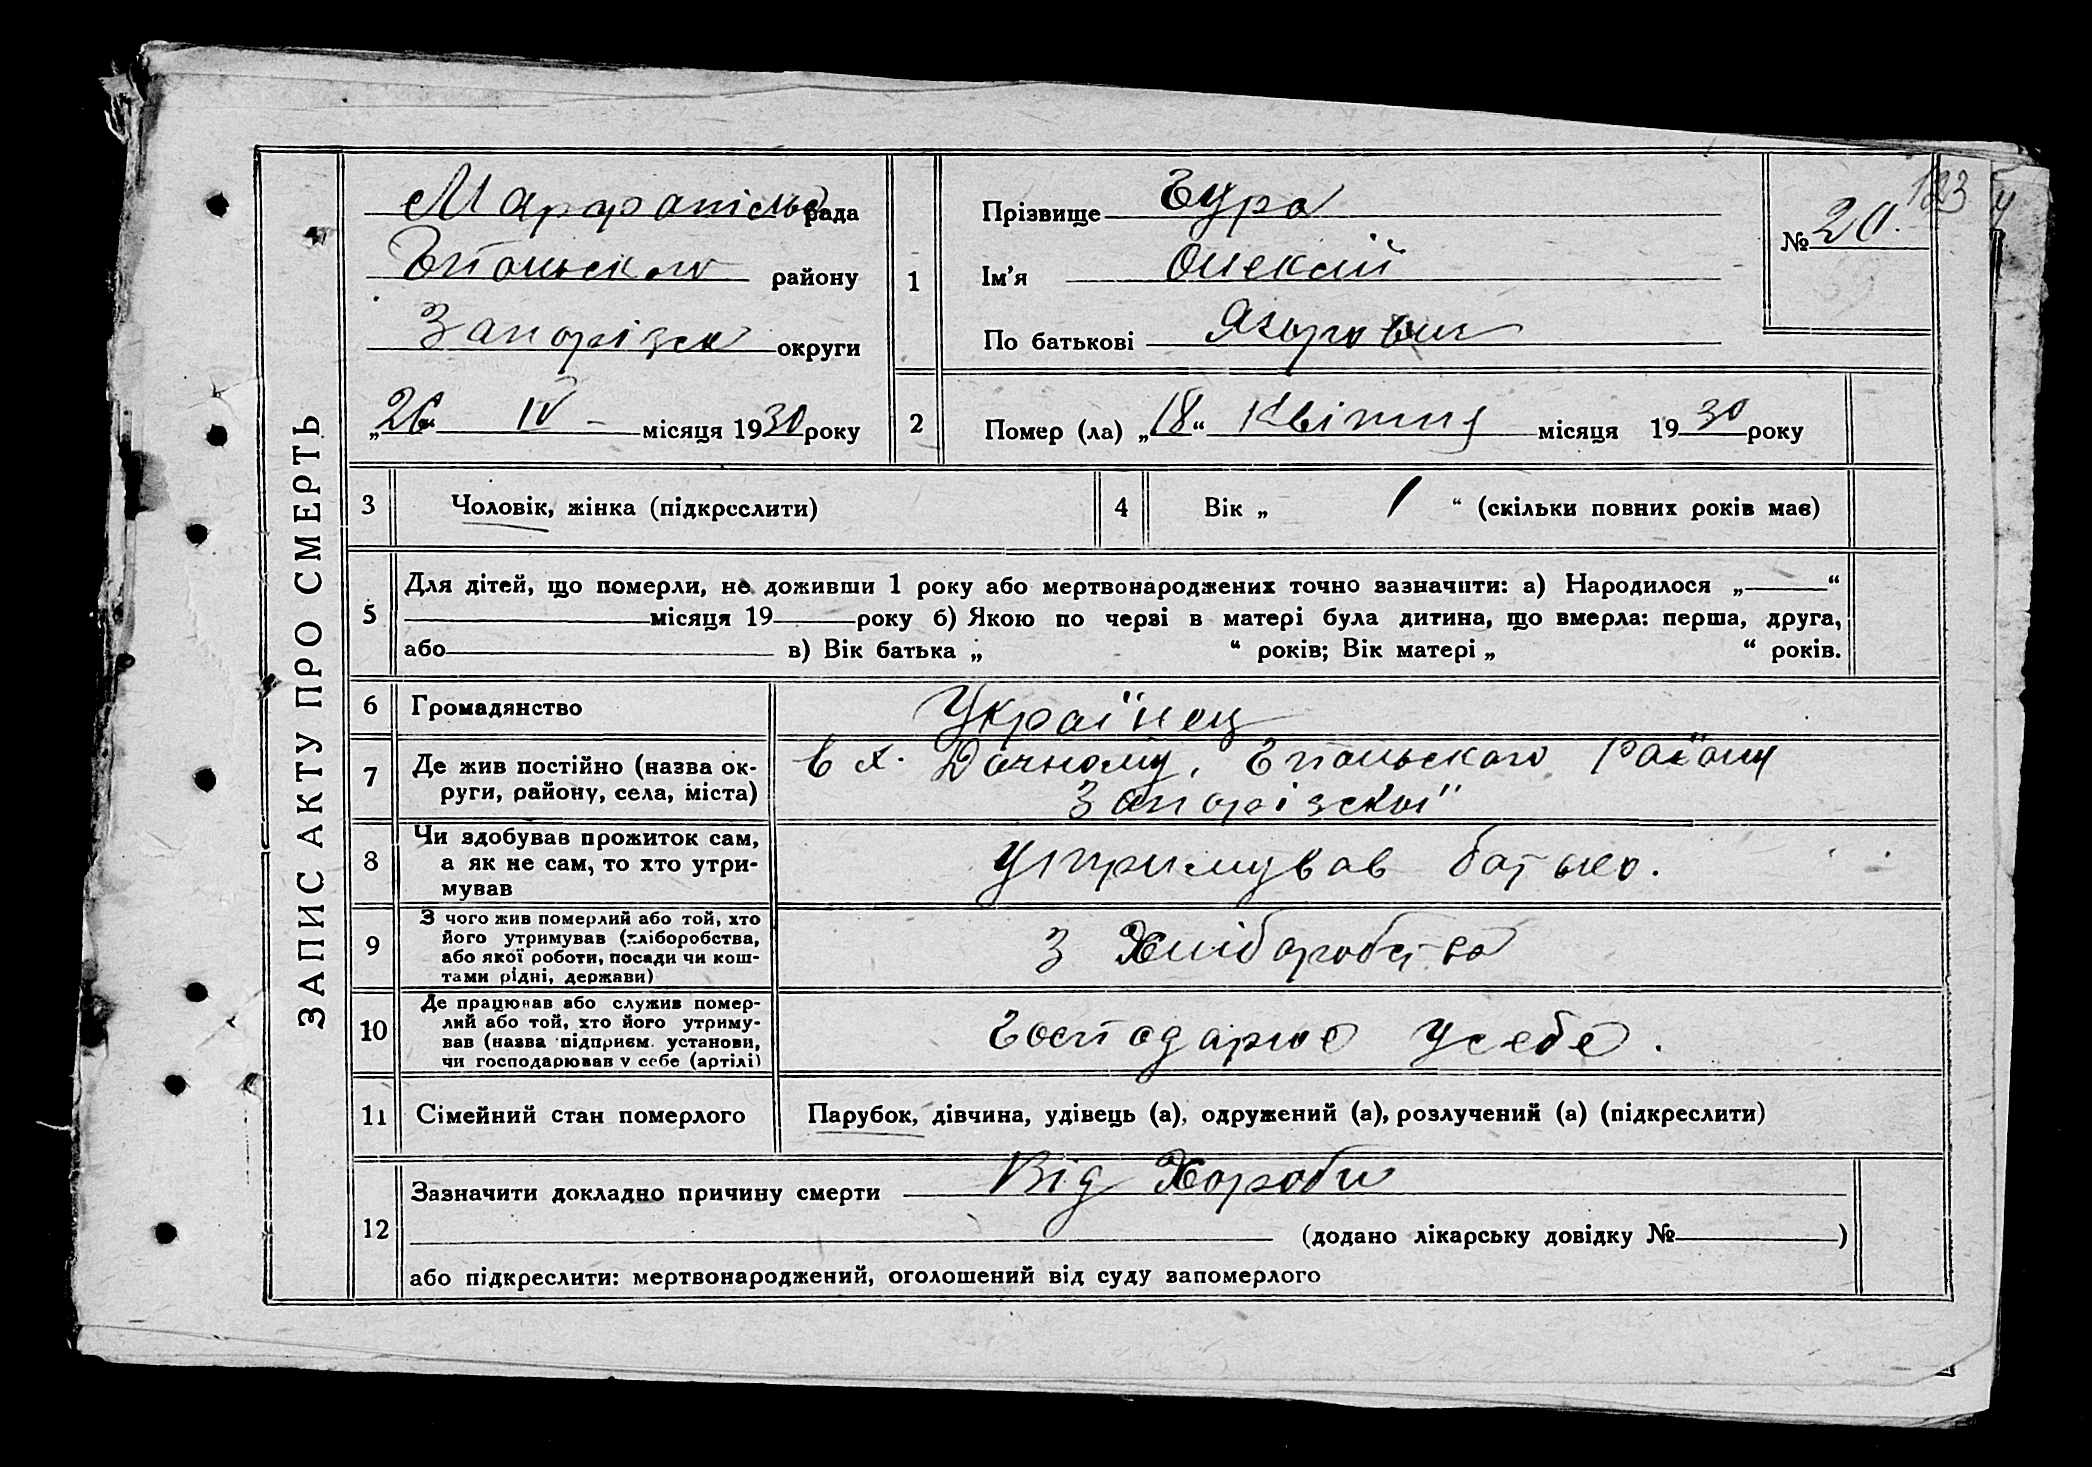 ЗАПИС АКТУ ПРО СМЕРТЬ
Марфопільс рада
Гпольского району
Запорізск округи
„26“ IV - місяця 1930 року
1
Прізвище Гура
Ім'я Олексій
По батькові
№ 20.
123
2
Помер (ла) „18“ Квітня місяця 1930 року
3
Чоловік, жінка (підкреслити)
4
Вік „ 1 “ (скільки повних років має)
5
Для дітей, що померли, не доживши 1 року або мертвонароджених точно зазначити: а) Народилося „ “
місяця 19 року б) Якою по черзі в матері була дитина, що вмерла: перша, друга,
або в) Вік батька „ “ років; Вік матері „ “ років.
6
Громадянство
Українец
7
Де жив постійно (назва ок-
руги, району, села, міста)
в х. Дачному, Гпольского Району
Запорізскої
8
Чи здобував прожиток сам,
а як не сам, то хто утри-
мував
Утримував батько.
9
З чого жив померлий або той, хто
його утримував (хліборобства,
або якої роботи, посади чи кош-
тами рідні, держави)
З Хліборобства
10
Де працював або служив помер-
лий або той, хто його утриму-
вав (назва підприєм. установи,
чи господарював у себе (артілі)
Господарює у себе.
11
Сімейний стан померлого
Парубок, дівчина, удівець (а), одружений (а), розлучений (а) (підкреслити)
12
Зазначити докладно причину смерти Від Хороби
(додано лікарську довідку № )
або підкреслити: мертвонароджений, оголошений від суду запомерлого